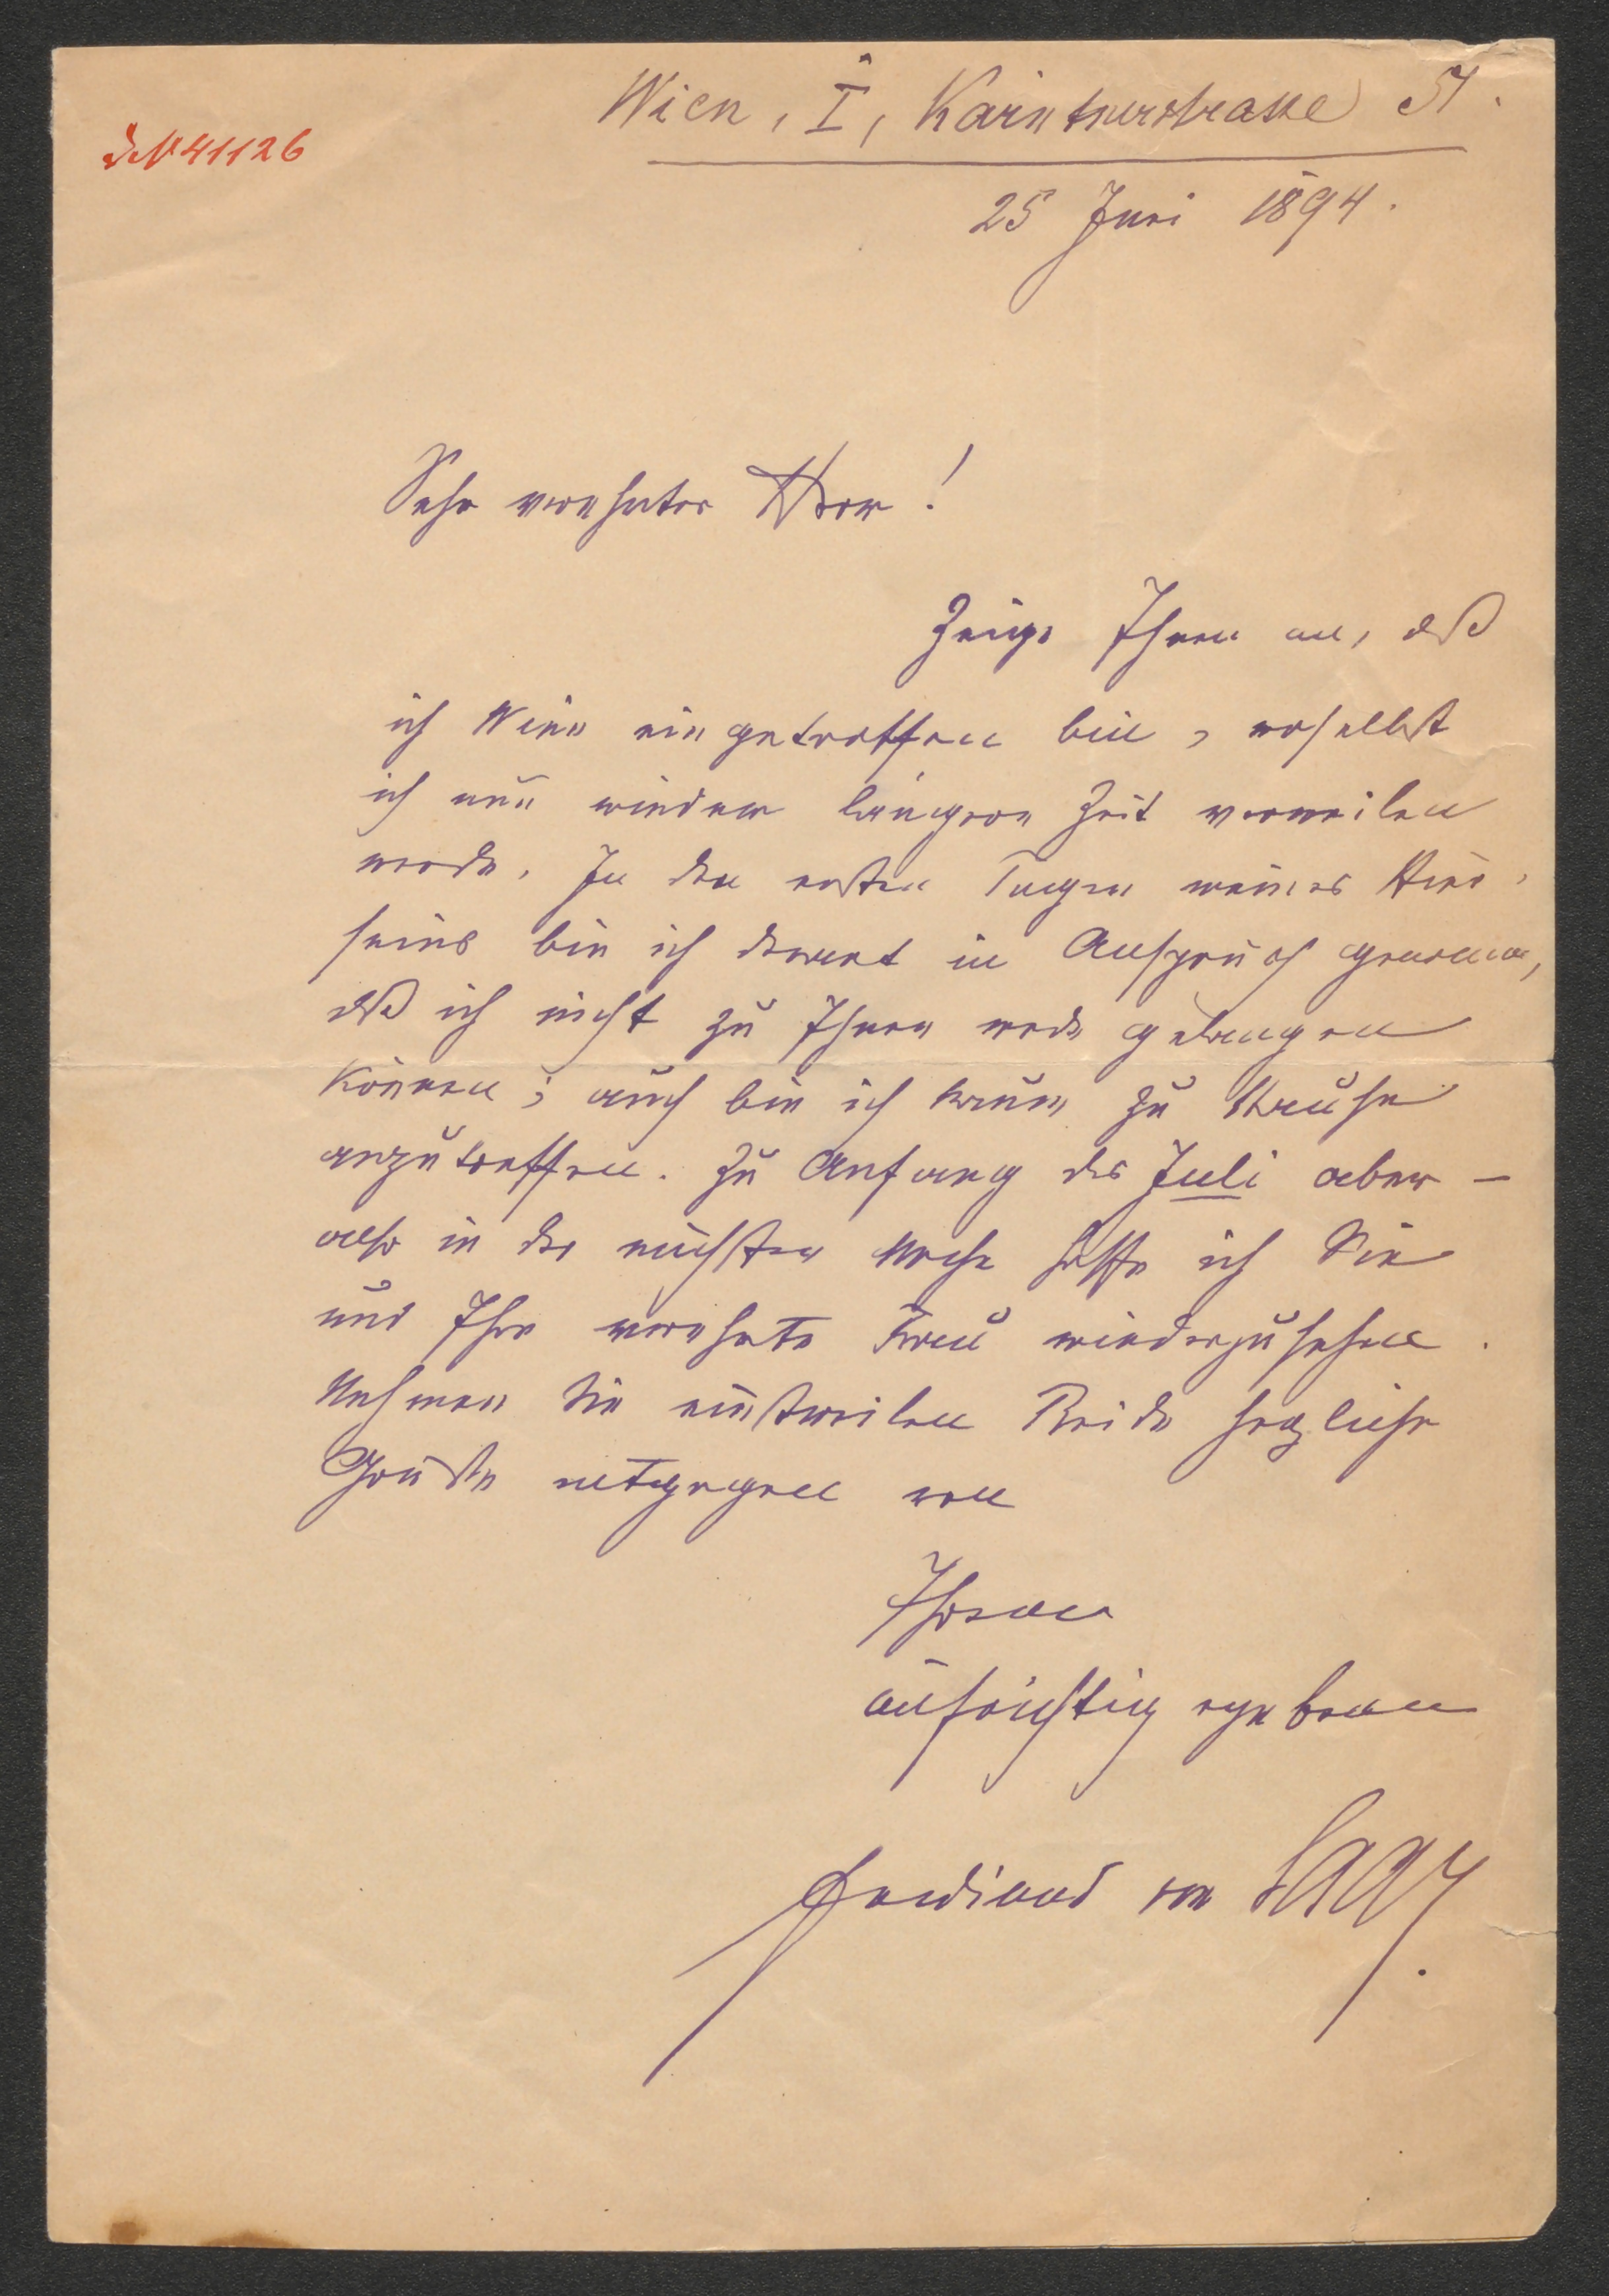 Wien, I, Kärntnerstrasse 51.
JN 41126
25 Juni 1894.
Sehr verehrter Herr!
Zeige Ihnen an, daß
ich Wien eingetroffen bin, woselbst
ich nun wieder längere Zeit verweilen
werde. In den ersten Tagen meines Hier-
seins bin ich derart in Anspruch genommen,
daß ich nicht zu Ihnen werde gelangen
können; auch bin ich kaum zu Hause
anzutreffen. Zu Anfang des Juli aber –
also in der nächsten Woche hoffe ich Sie
und Ihre verehrte Frau wiederzusehen.
Nehmen Sie einstweilen Beide herzliche
Grüße entgegen von
Ihrem
aufrichtig ergebenen
Ferdinand von Saar.